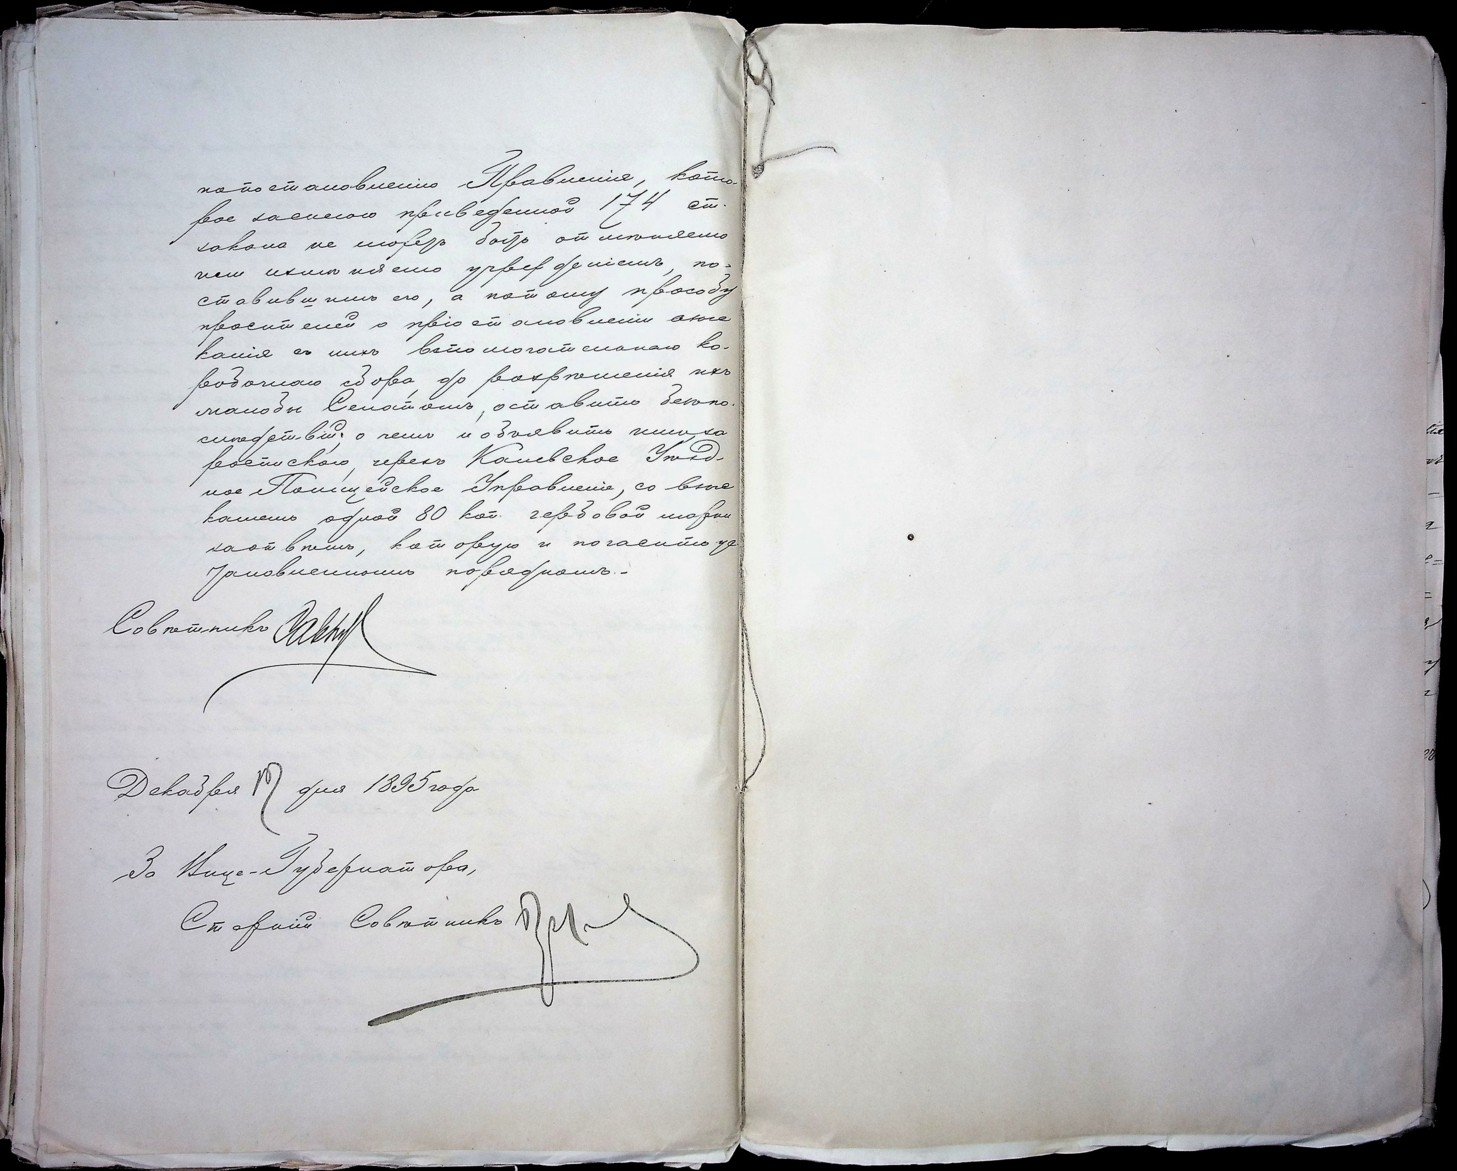 по постановленію Правленія, кото-
рое за силою приведенной 174 ст.
закона не можетъ быть отмѣняемо
или измѣняемо учрежденіемъ, по-
становившимъ его, а потому прозьбу
просителей о пріостановленіи взыс
канія съ нихъ вспомогательнаго ко-
робочнаго сбора, до разрѣшенія ихъ
жалобы Сенатомъ, оставить безъ по-
слѣдствій; о чемъ и объявить имъ, за
роспискою, черезъ Каневское Уѣзд-
ное Полицейское Управленіе, со взыс
каніемъ одной 80 коп. гербовой марки
за отвѣтъ, которую и погасить ус
тановленнымъ порядкомъ.-
Совѣтникъ
Декабря 17 дня 1895 года
За Вице-Губернатора,
Старшій Совѣтникъ